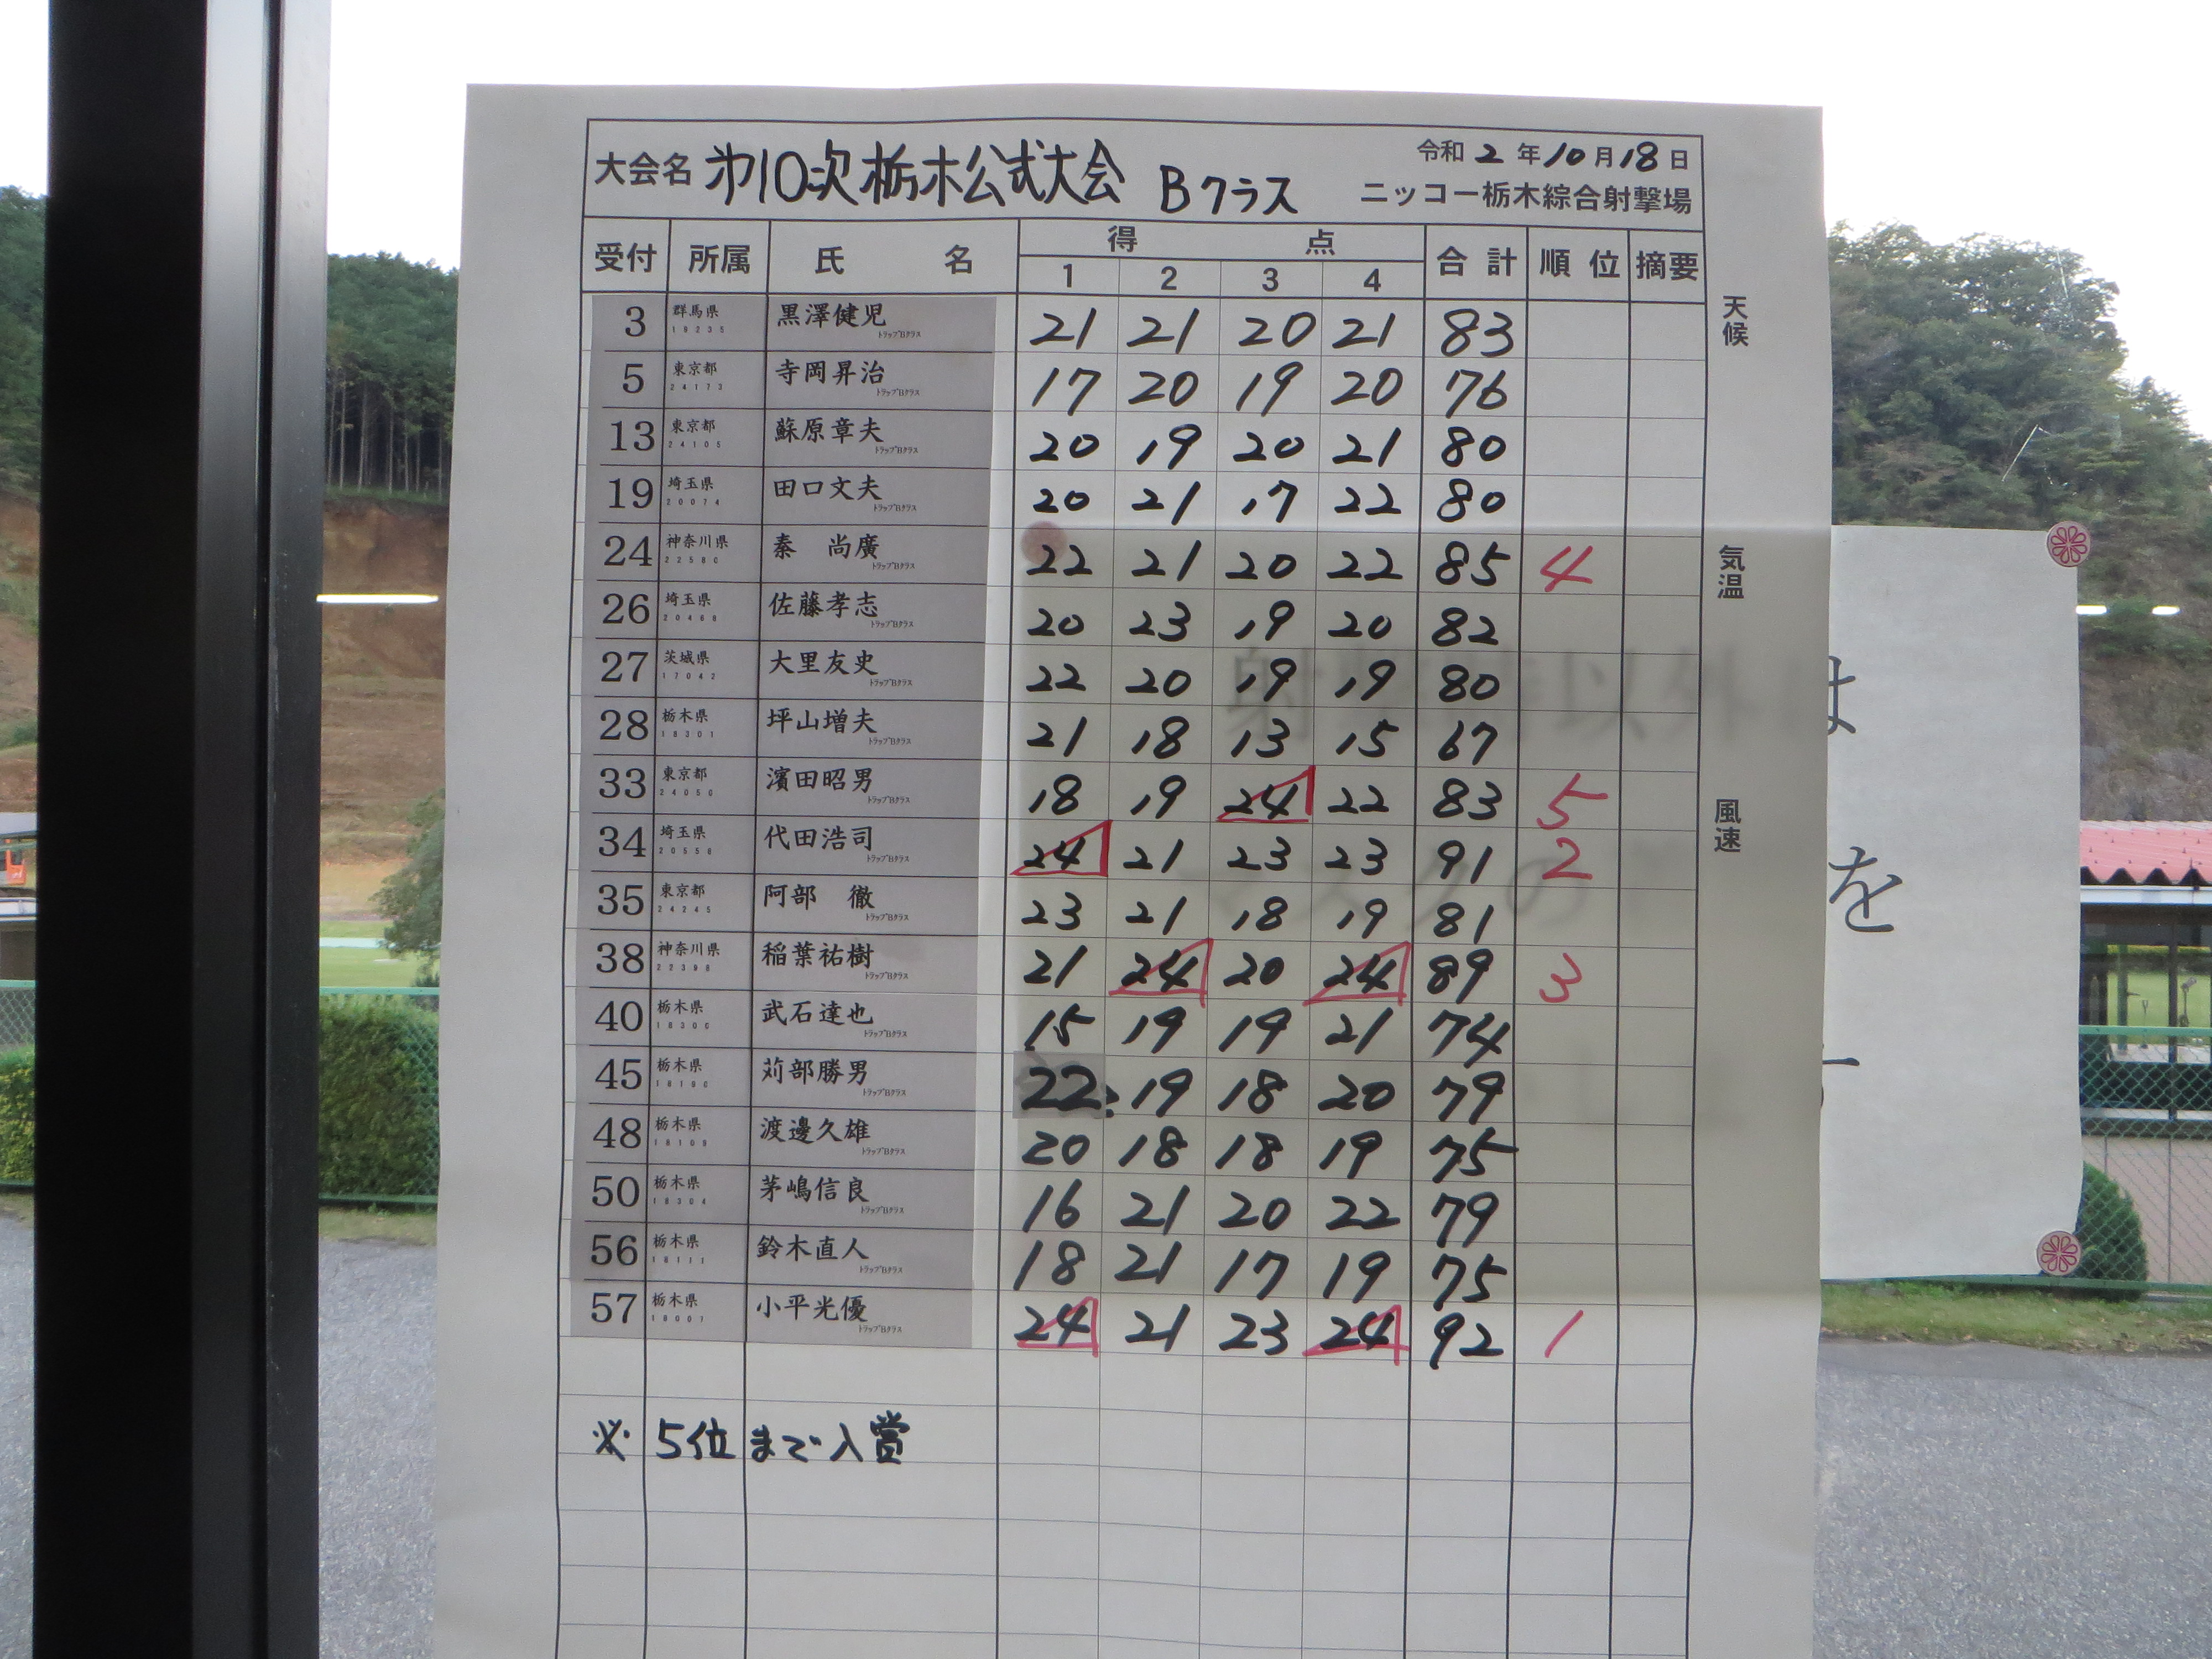 大会名 第10次栃木公式大会 Bクラス 令和2年10月18日
ニッコー栃木綜合射撃場
受付 所属 氏名 得点 合計 順位 摘要
1 2 3 4
3 群馬県 黒澤健児 トラップBクラス 21 21 20 21 83
18235
5 東京都 寺岡昇治 トラップBクラス 17 20 19 20 76
24173
13 東京都 蘇原章夫 トラップBクラス 20 19 20 21 80
24105
19 埼玉県 田口文夫 トラップBクラス 20 21 17 22 80
20074
24 神奈川県 秦 尚廣 トラップBクラス 22 21 20 22 85 4
26 埼玉県 佐藤孝志 トラップBクラス 20 23 19 20 82
27 茨城県 大里友史 トラップBクラス 22 20 19 19 80
17042
28 栃木県 坪山増夫 トラップBクラス 21 18 13 15 67
18301
33 東京都 濱田昭男 トラップBクラス 18 19 24 22 83 5
34 埼玉県 代田浩司 トラップBクラス 24 21 23 23 91 2
35 東京都 阿部 徹 トラップBクラス 23 21 18 19 81
24245
38 神奈川県 稲葉祐樹 トラップBクラス 21 24 20 24 89 3
22398
40 栃木県 武石達也 トラップBクラス 15 19 19 21 74
45 栃木県 苅部勝男 トラップBクラス 22 19 18 20 79
48 栃木県 渡邊久雄 トラップBクラス 20 18 18 19 75
50 栃木県 茅嶋信良 トラップBクラス 16 21 20 22 79
18304
56 栃木県 鈴木直人 トラップBクラス 18 21 17 19 75
18111
57 栃木県 小平光優 トラップBクラス 24 21 23 24 92 1
18001
※5位まで入賞
天候
気温
風速
は
を